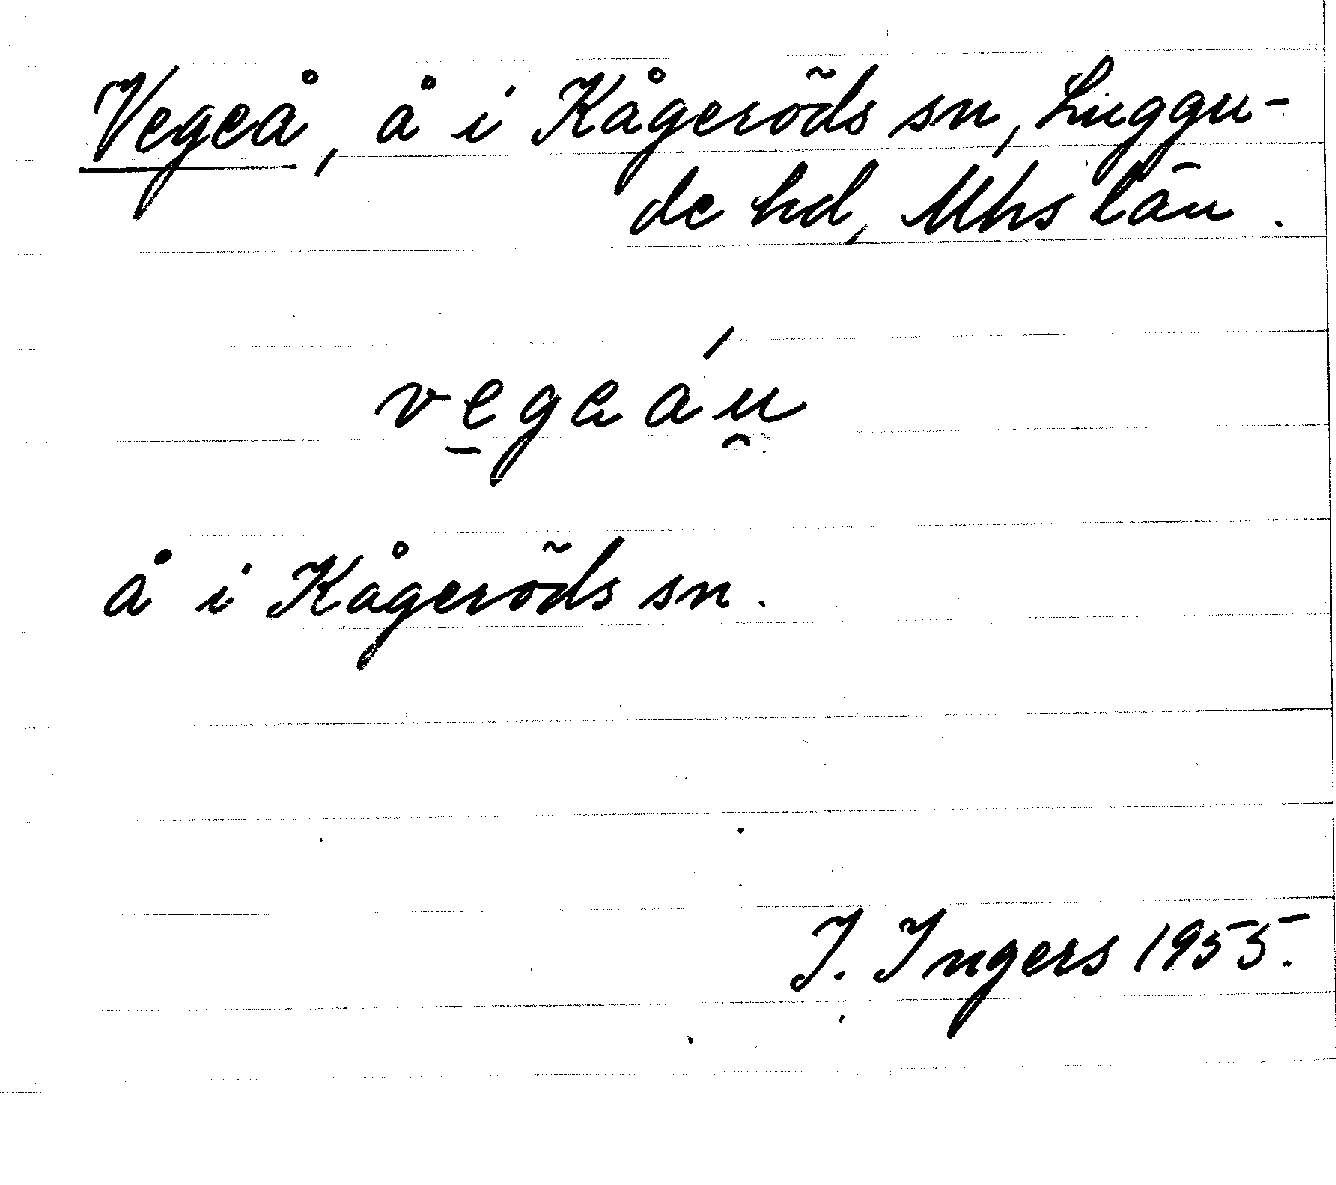 Vegeå, å i Kågeröds sn, Luggu-
de hd, Mhs län.
vegeáu
å i Kågeröds sn.
I. Ingers 1955.